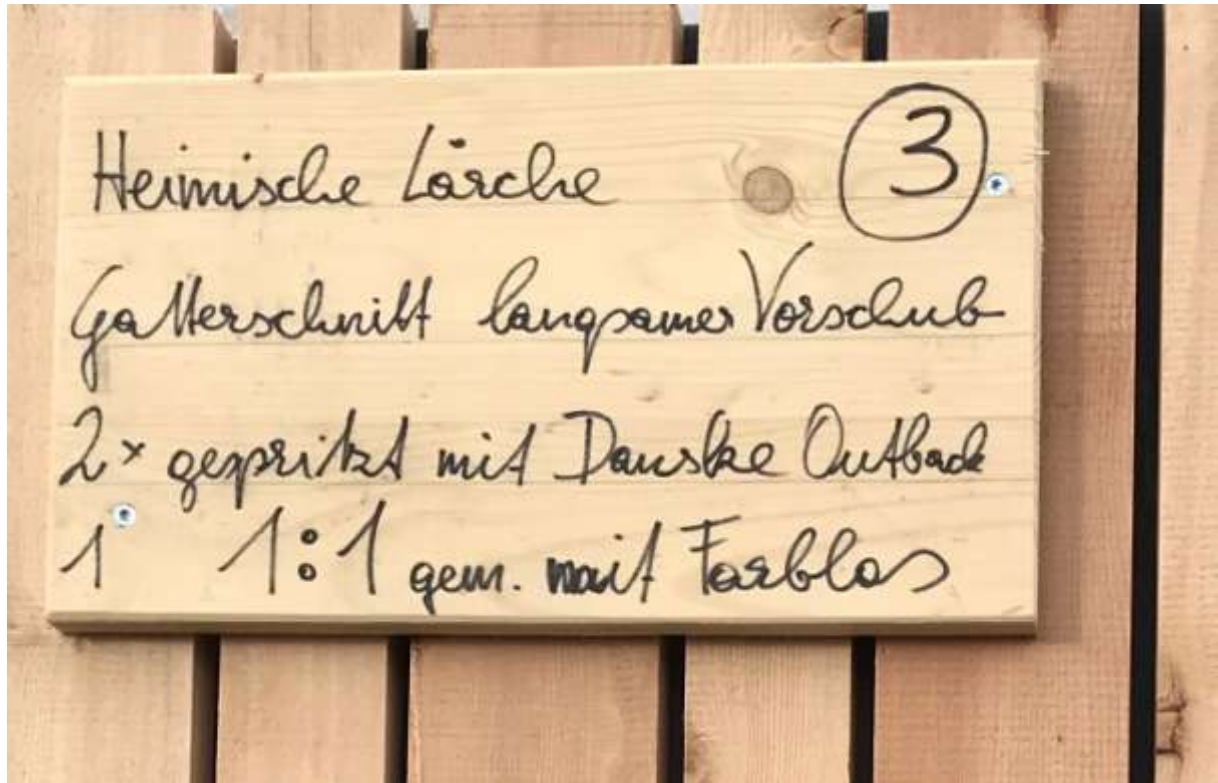 Heimische Lärche 3
Gatterschnitt langsamer Vorschub
2x gespritzt mit Danske Outback
1 1:1 gem. mit Farblos